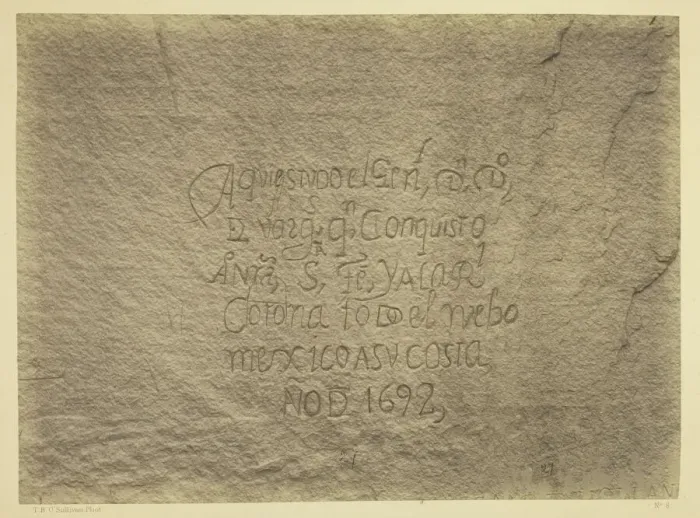 Aqui estubo el Genl, Dn, Do,
D vargs, qn Conquisto
A Nra, Sra, Fe, YALAREl
Corona todo el nuebo
mexico ASV COSTA,
AÑO D 1692,
T. H. O'Sullivan Phot.
No. 4